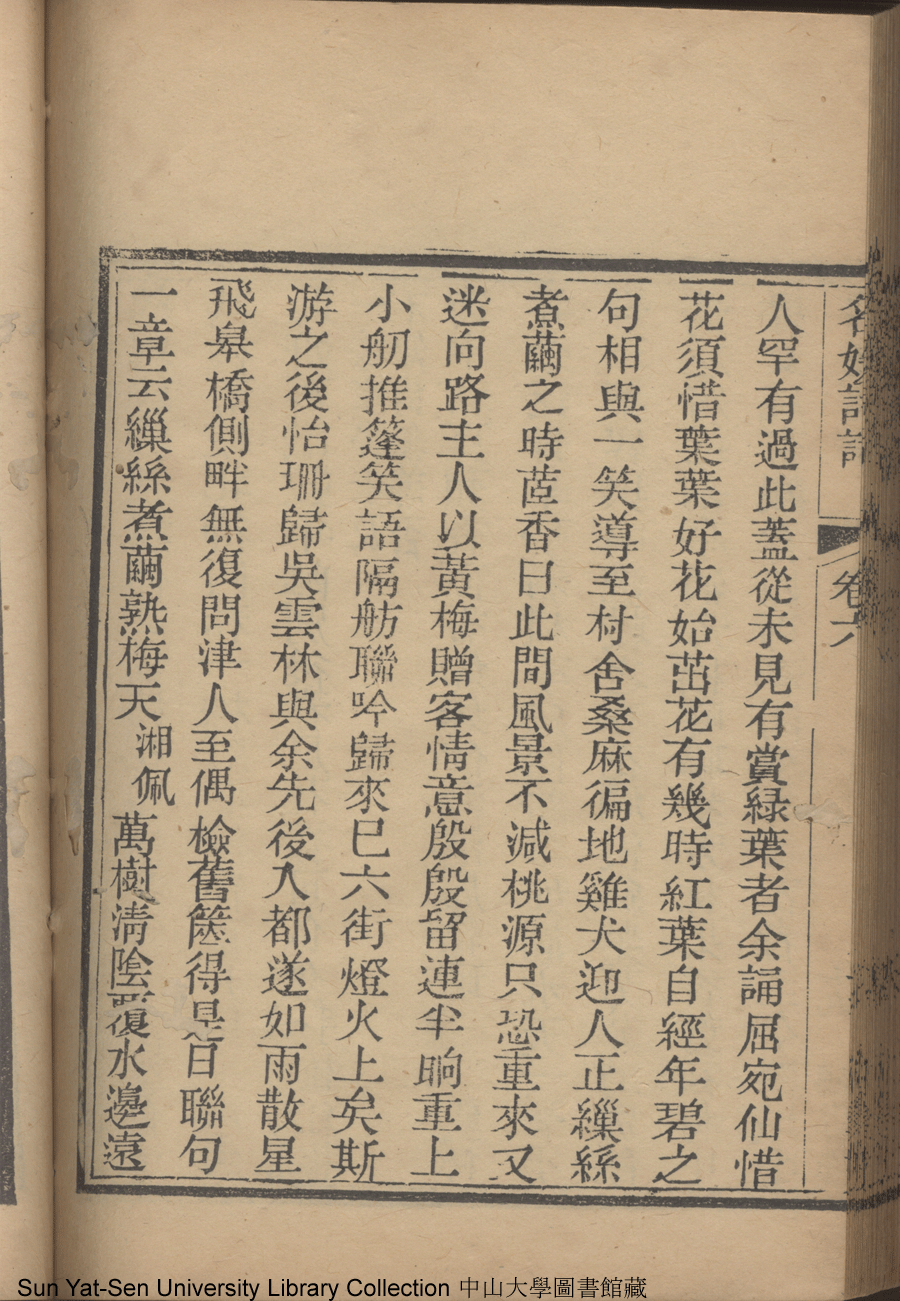 名媛詩話
卷六
人罕有過此蓋從未見有賞綠葉者余誦屈宛仙惜
花須惜葉葉好花始茁花有幾時紅葉自經年碧之
句相與一笑導至村舍桑麻徧地雞犬迎人正繅絲
煮繭之時茝香曰此間風景不減桃源只恐重來又
迷向路主人以黃梅贈客情意殷殷留連半晌重上
小舠推篷笑語隔舫聯吟歸來已六街燈火上矣斯
游之後怡珊歸吳雲林與余先後入都遂如雨散星
飛皋橋側畔無復問津人至偶檢舊篋得是日聯句
一章云繅絲煮繭熟梅天湘佩萬樹清陰覆水邊遠
Sun Yat-Sen University Library Collection 中山大學圖書館藏